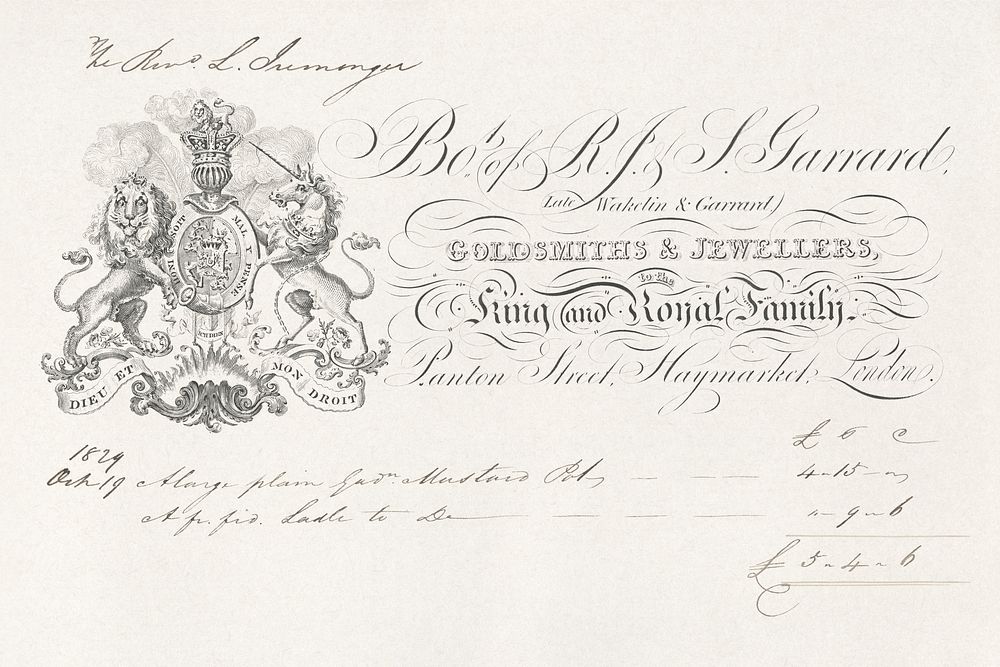 The Revd. L. Iremonger
Bot. of R. J. & S. Garrard,
(Late Wakelin & Garrard)
GOLDSMITHS & JEWELLERS,
to the
King and Royal Family.
Panton Street, Haymarket, London.
HONI SOIT QUI MAL Y PENSE
ICH DIEN
DIEU ET MON DROIT
£ s d
1829
Oct 19 A large plain Gadn. Mustard Pot — — — 4 - 15 - "
A fid. Ladle to Do — — — — " - 9 - 6
£ 5 - 4 - 6